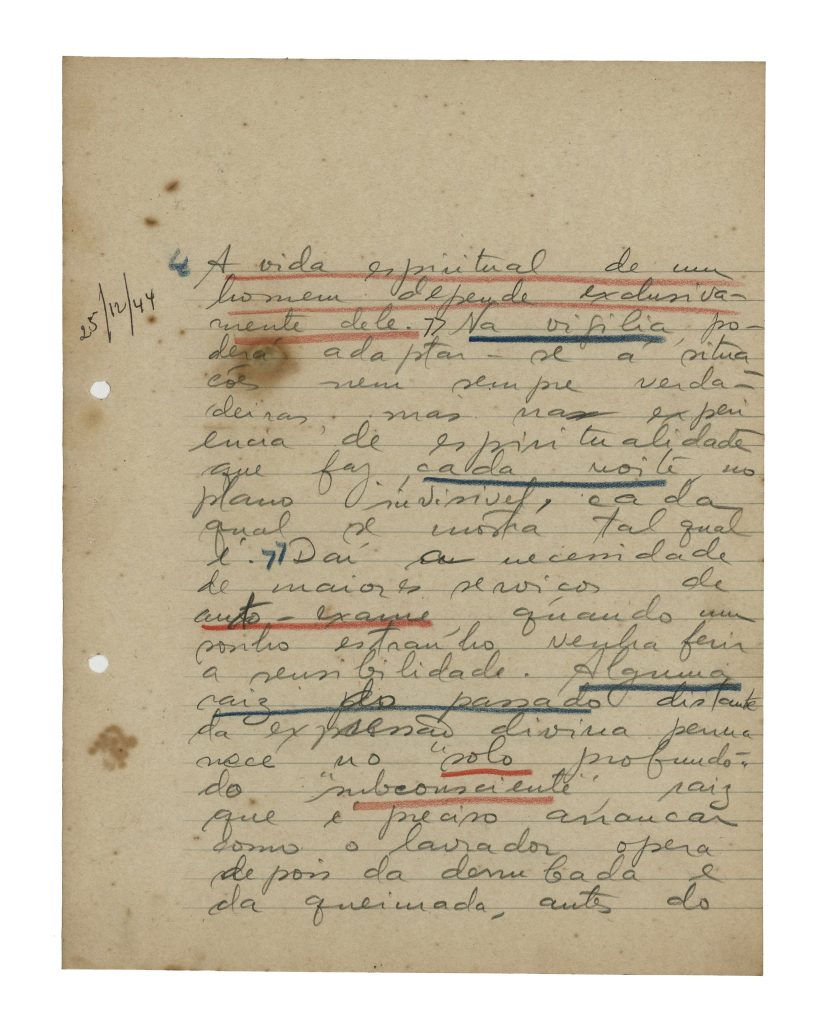 25/12/44
A vida espiritual de um
homem depende exclusiva-
mente dele. Na vigilia, po-
derá adaptar-se á situa
ções nem sempre verda-
deiras, mas na experi
encia de espiritualidade
que faz, cada noite, no
plano invisivel, cada
qual se mostra tal qual
é. Daí a necessidade
de maiores serviços de
auto-exame, quando um
sonho estranho venha ferir
a sensibilidade. Alguma
raiz do passado distante
da expressão divina perma
nece no "solo profundo"
do "subconsciente", raiz
que é preciso arrancar
como o lavrador opera
depois da derrubada e
da queimada, antes do